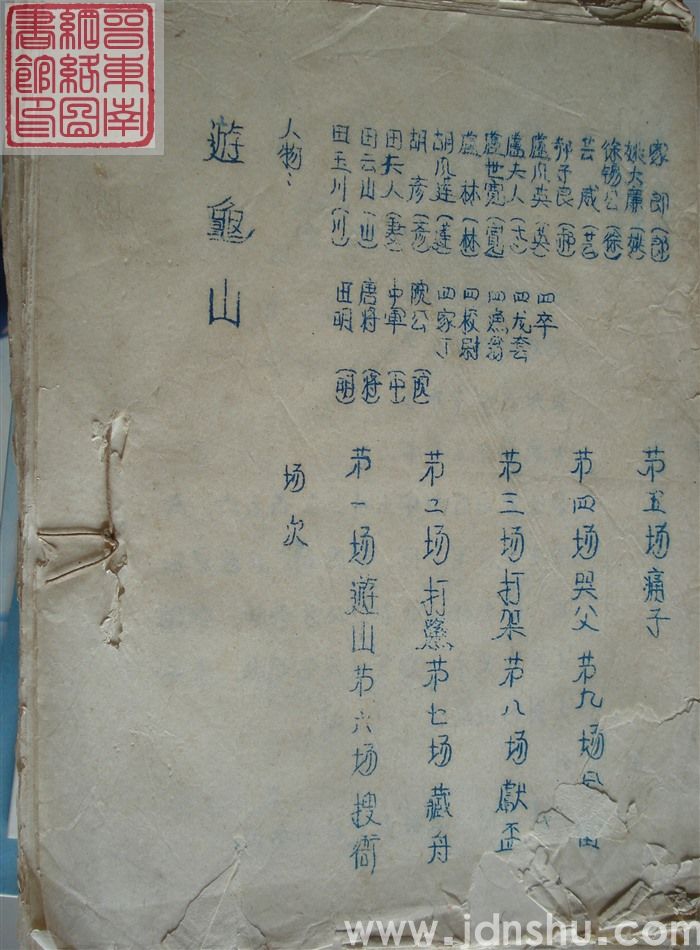 晉東南
網絡圖
書館印
遊龜山
人物:
田玉川(川) 田明(明)
田云山(山) 唐将(将)
田夫人(妻) 中軍(中)
胡彦(彦) 院公(院)
胡凤莲(莲) 四家丁
盧林(林) 四校尉
盧世寬(寬) 四漁翁
盧夫人 四龙套
盧凤英(英) 四卒
郝子良(郝)
芸咸(芸)
徐锡公(徐)
姚大廉(姚)
家郎(郎)
场次
第一场遊山 第六场搜衙
第二场打 第七场藏舟
第三场打架 第八场獻盃
第四场哭父 第九场
第五场痛子
www.jdnshu.com